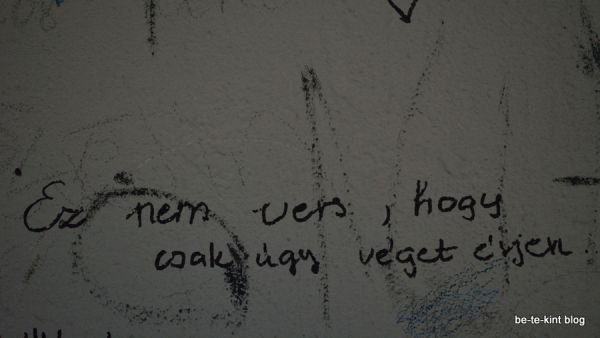 Ez nem vers, hogy
csak úgy véget érjen.
be-te-kint blog